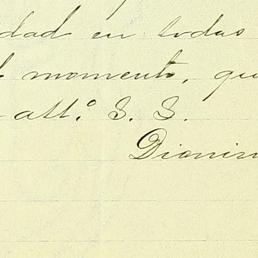 dad en todas
momento, qu
att.º S. S.
Dionis